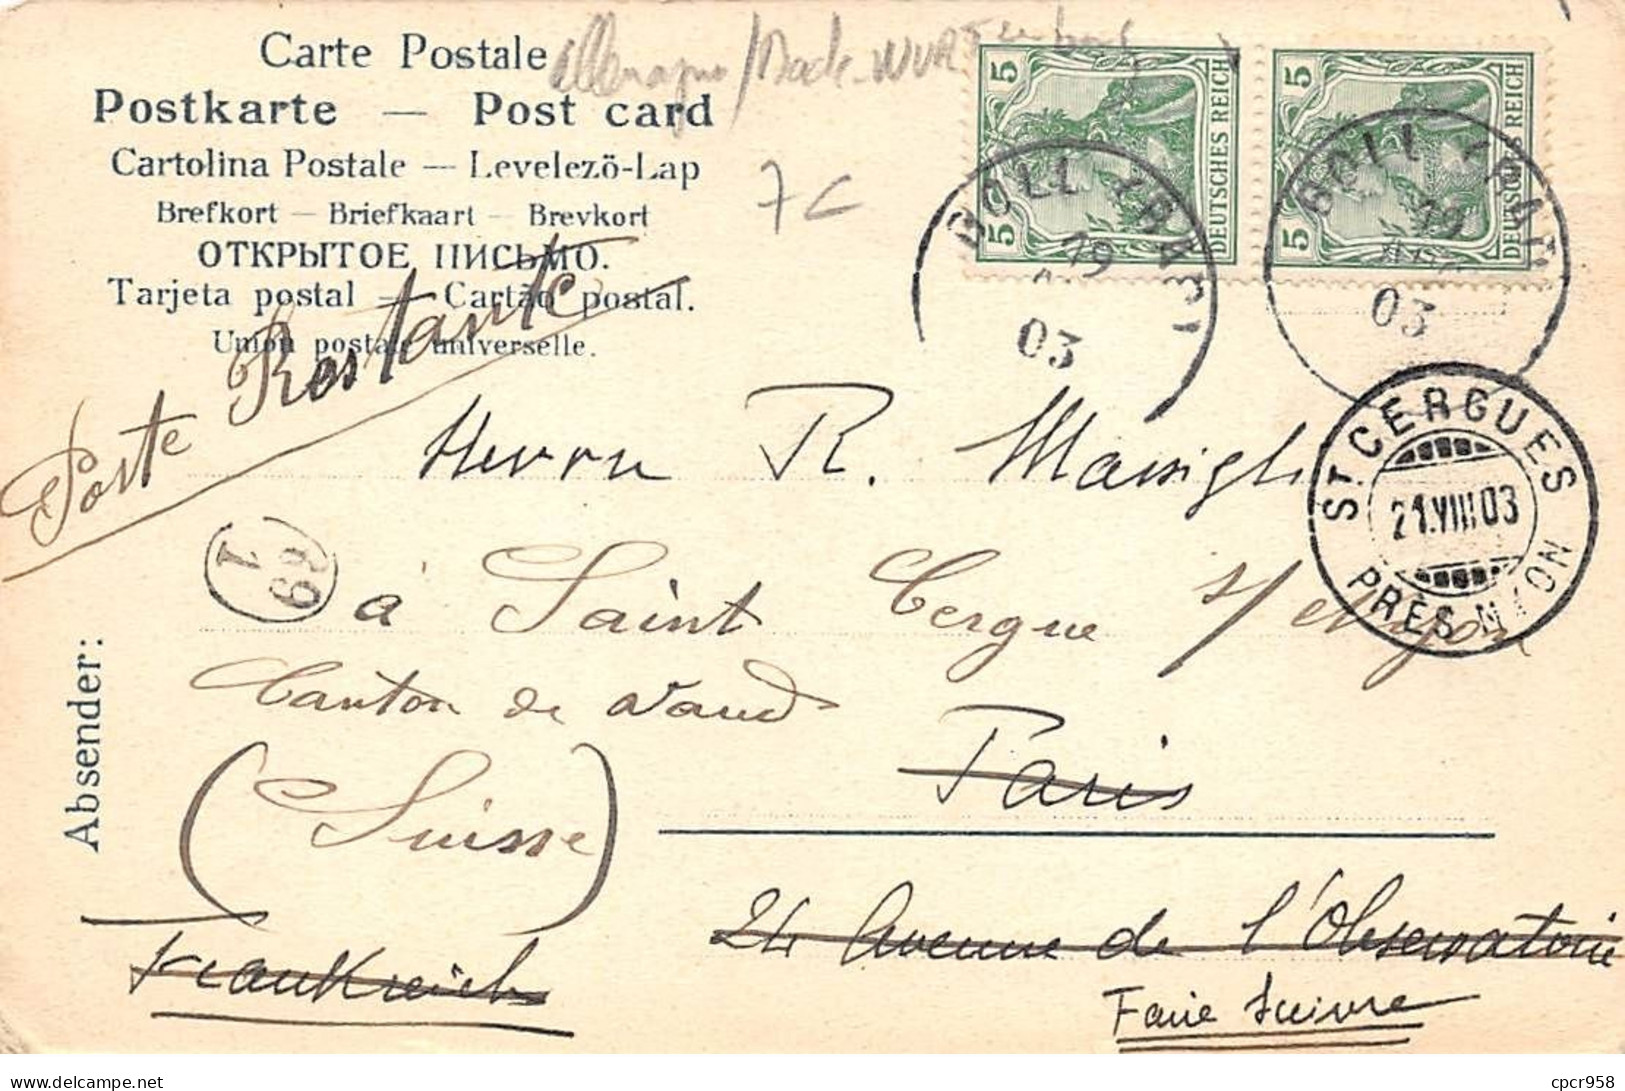 Carte Postale
Allemagne/Bade-WURTemberg
Postkarte — Post card
Cartolina Postale — Levelezö-Lap
Brefkort — Briefkaart — Brevkort
ОТКРЫТОЕ ПИСЬМО.
Tarjeta postal — Cartão postal.
Union postale universelle.
7C
5 5 DEUTSCHES REICH
5 5 DEUTSCHES REICH
BOLL
19
03
BOLL
19
03
Poste Restante
Herrn R. Massigli
ST. CERGUES
21.VIII.03
PRÈS NYON
69
1
à Saint Cergue s/ Nyon
Canton de Vaud
Paris
(Suisse)
Absender:
24 Avenue de l'Observatoire
Frankreich
Faire suivre
cpcr958